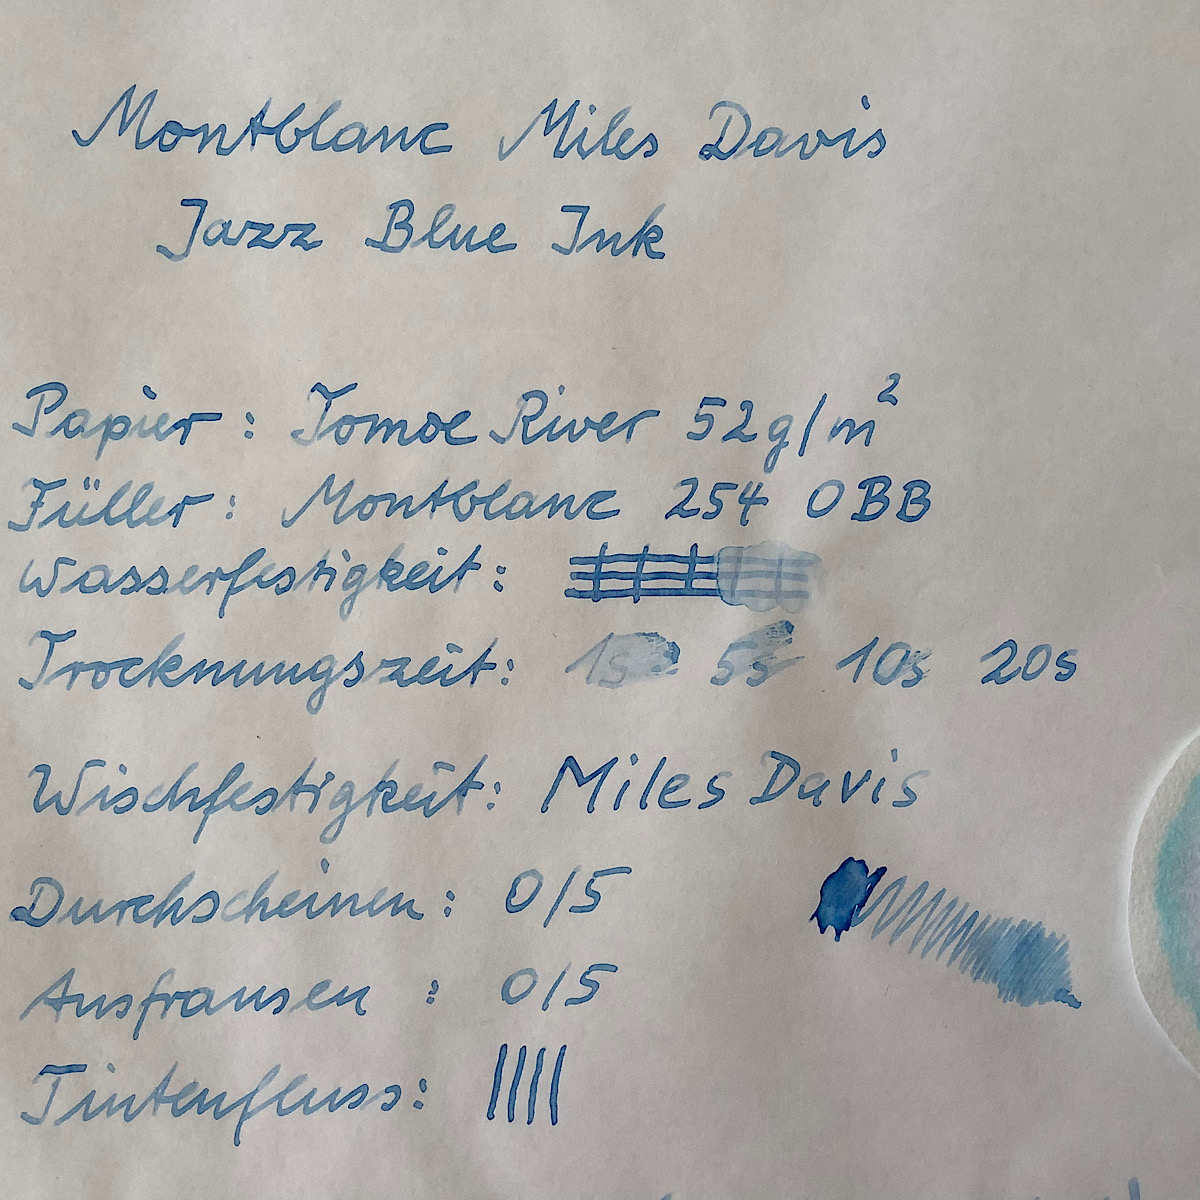 Montblanc Miles Davis
Jazz Blue Ink
Papier: Tomoe River 52g/m²
Füller: Montblanc 254 OBB
Wasserfestigkeit:
Trocknungszeit: 1s 5s 10s 20s
Wischfestigkeit: Miles Davis
Durchscheinen: 0/5
Ausfransen: 0/5
Tintenfluss: